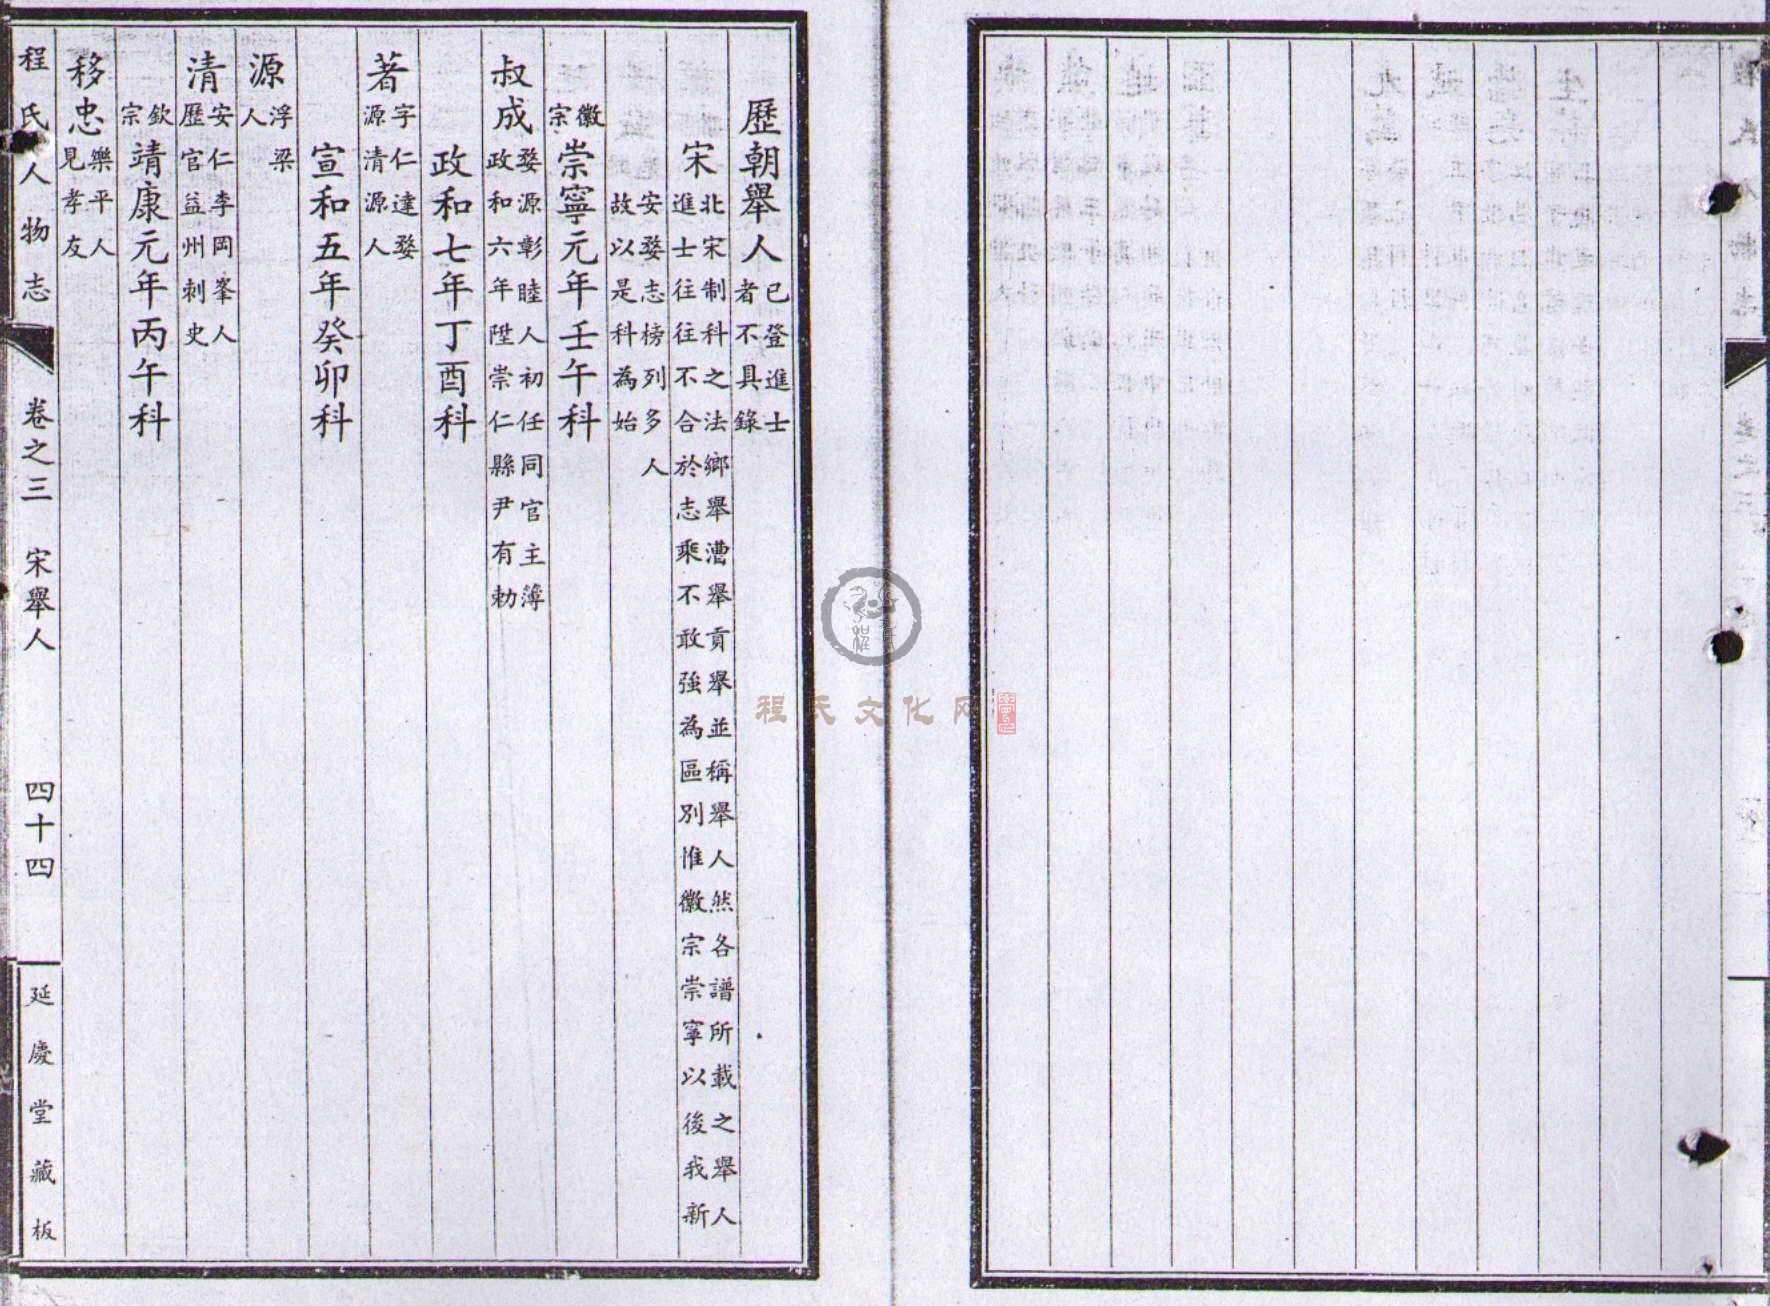 歷朝舉人
已登進士
者不具錄
宋
北宋制科之法鄉舉漕舉貢舉並稱舉人然各譜所載之舉人
進士往往不合於志乘不敢強為區別惟徽宗崇寧以後我新
安婺志榜列多人
故以是科為始
徽宗
崇寧元年壬午科
叔成
婺源彰睦人初任同官主簿
政和六年陞崇仁縣尹有勅
政和七年丁酉科
著
字仁達婺
源清源人
宣和五年癸卯科
源
浮梁
人
清
安仁李岡峯人
歷官益州刺史
欽宗
靖康元年丙午科
移忠
樂平人
見孝友
程氏人物志
卷之三
宋舉人
四十四
延慶堂藏板
程氏文化网